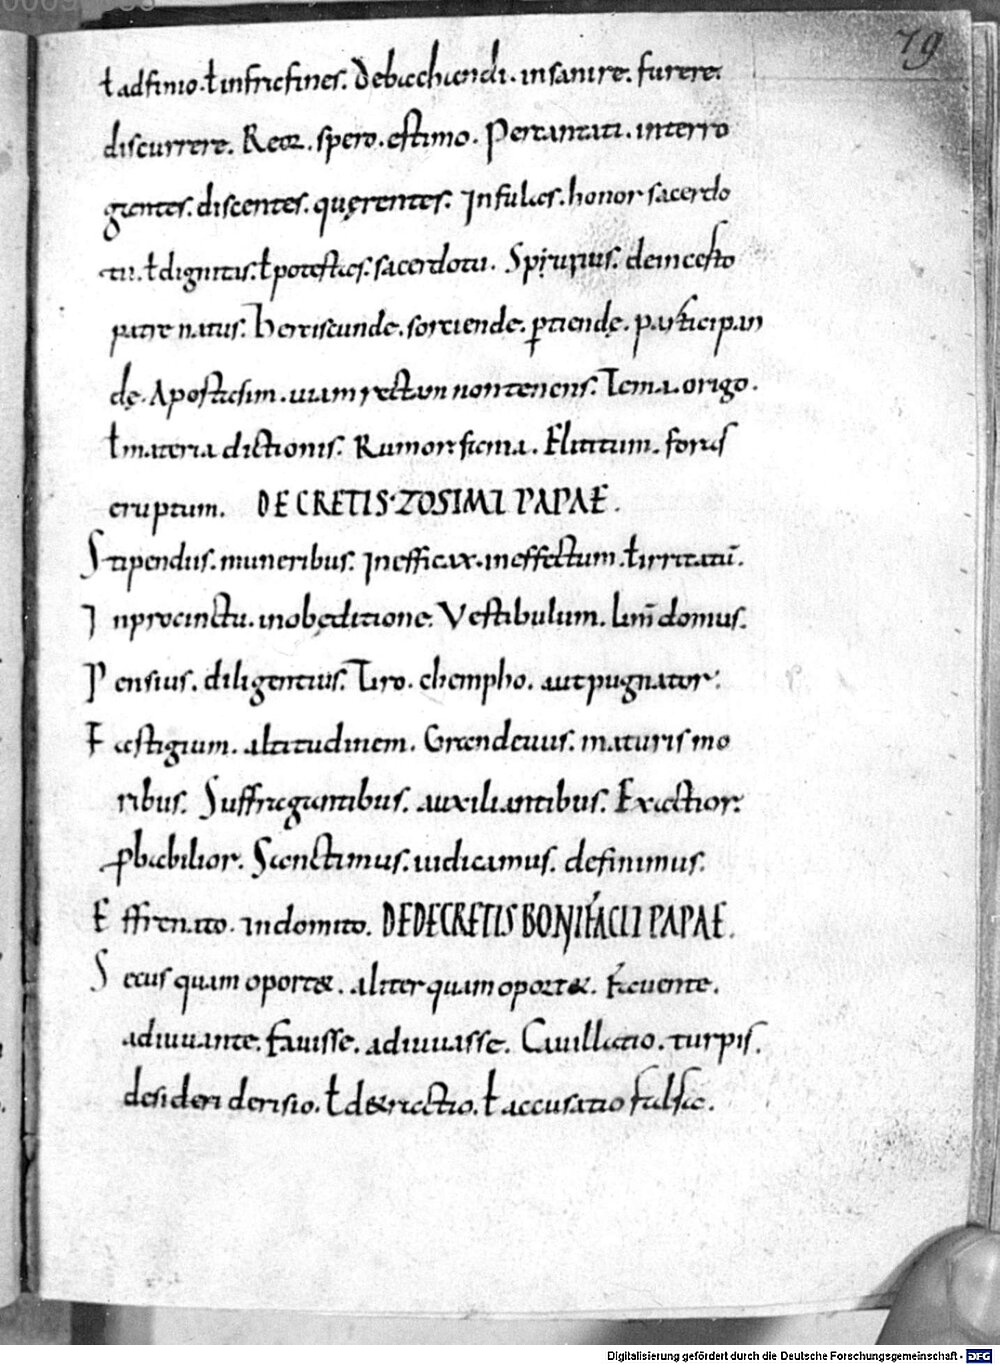 79
ƚ adfinio. ƚ infricfines. Debacchandi. insanire. furere.
discurrere. Reor. spero. estimo. Percunctati. interro
gantes. discentes. quęrentes. Infulas. honor sacerdo
tii. ƚ dignitas. ƚ potestas. sacerdotii. Spurius. deincesto
patre natus. Herciscunde. sortiende. ꝑtiendę. participan
dę. Apostasim. uiam rectam non tenens. Tema. origo.
ƚ materia dictionis. Rumor. fama. Elitum. foras
eruptum. DECRETIS·ZOSIMI PAPAE.
Stipendiis. muneribus. Inefficax. ineffectum. ƚ irritatū.
Inprocinctu. inobęditione. Vestibulum. lim̄ domus.
Pensius. diligentius. Tiro. chempho. aut pugnator.
Fastigium. altitudinem. Grandeuus. maturis mo
ribus. Suffragantibus. auxiliantibus. Exactior.
ꝓbabilior. Sanctimus. iudicamus. definimus.
Effrenato. indomito. DEDECRETIS BONIFACII PAPAE.
Secus quam oport&. aliter quam oport&. Fauente.
adiuuante. fauisse. adiuuasse. Cauillatio. turpis.
desideri derisio. ƚ d&ractio. ƚ accusatio falsa.
Digitalisierung gefördert durch die Deutsche Forschungsgemeinschaft - DFG